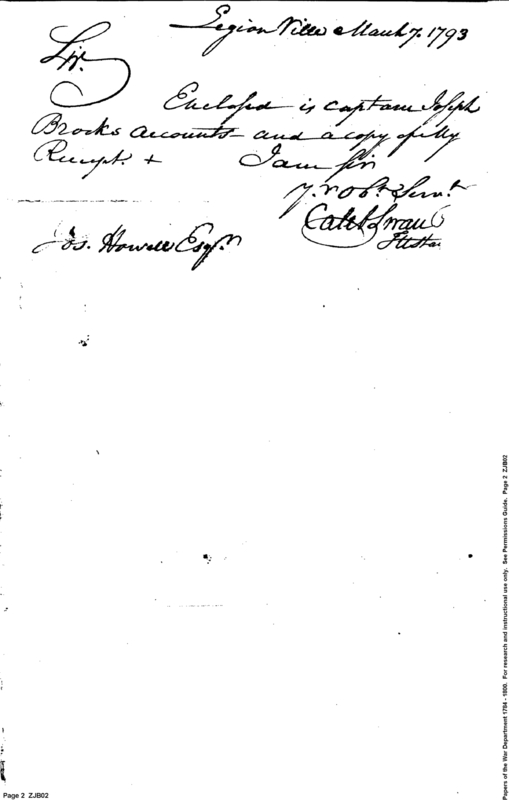 Legion Ville March 7. 1793
Sir.
Enclosed is captain Joseph
Brocks accounts and a copy of My
Receipt. + I am sir
Y.r Obt Servt
Caleb Swan
Jos. Howell Esqr.
Papers of the War Department 1784 - 1800. For research and instructional use only. See Permissions Guide. Page 2 ZJB02
Page 2 ZJB02